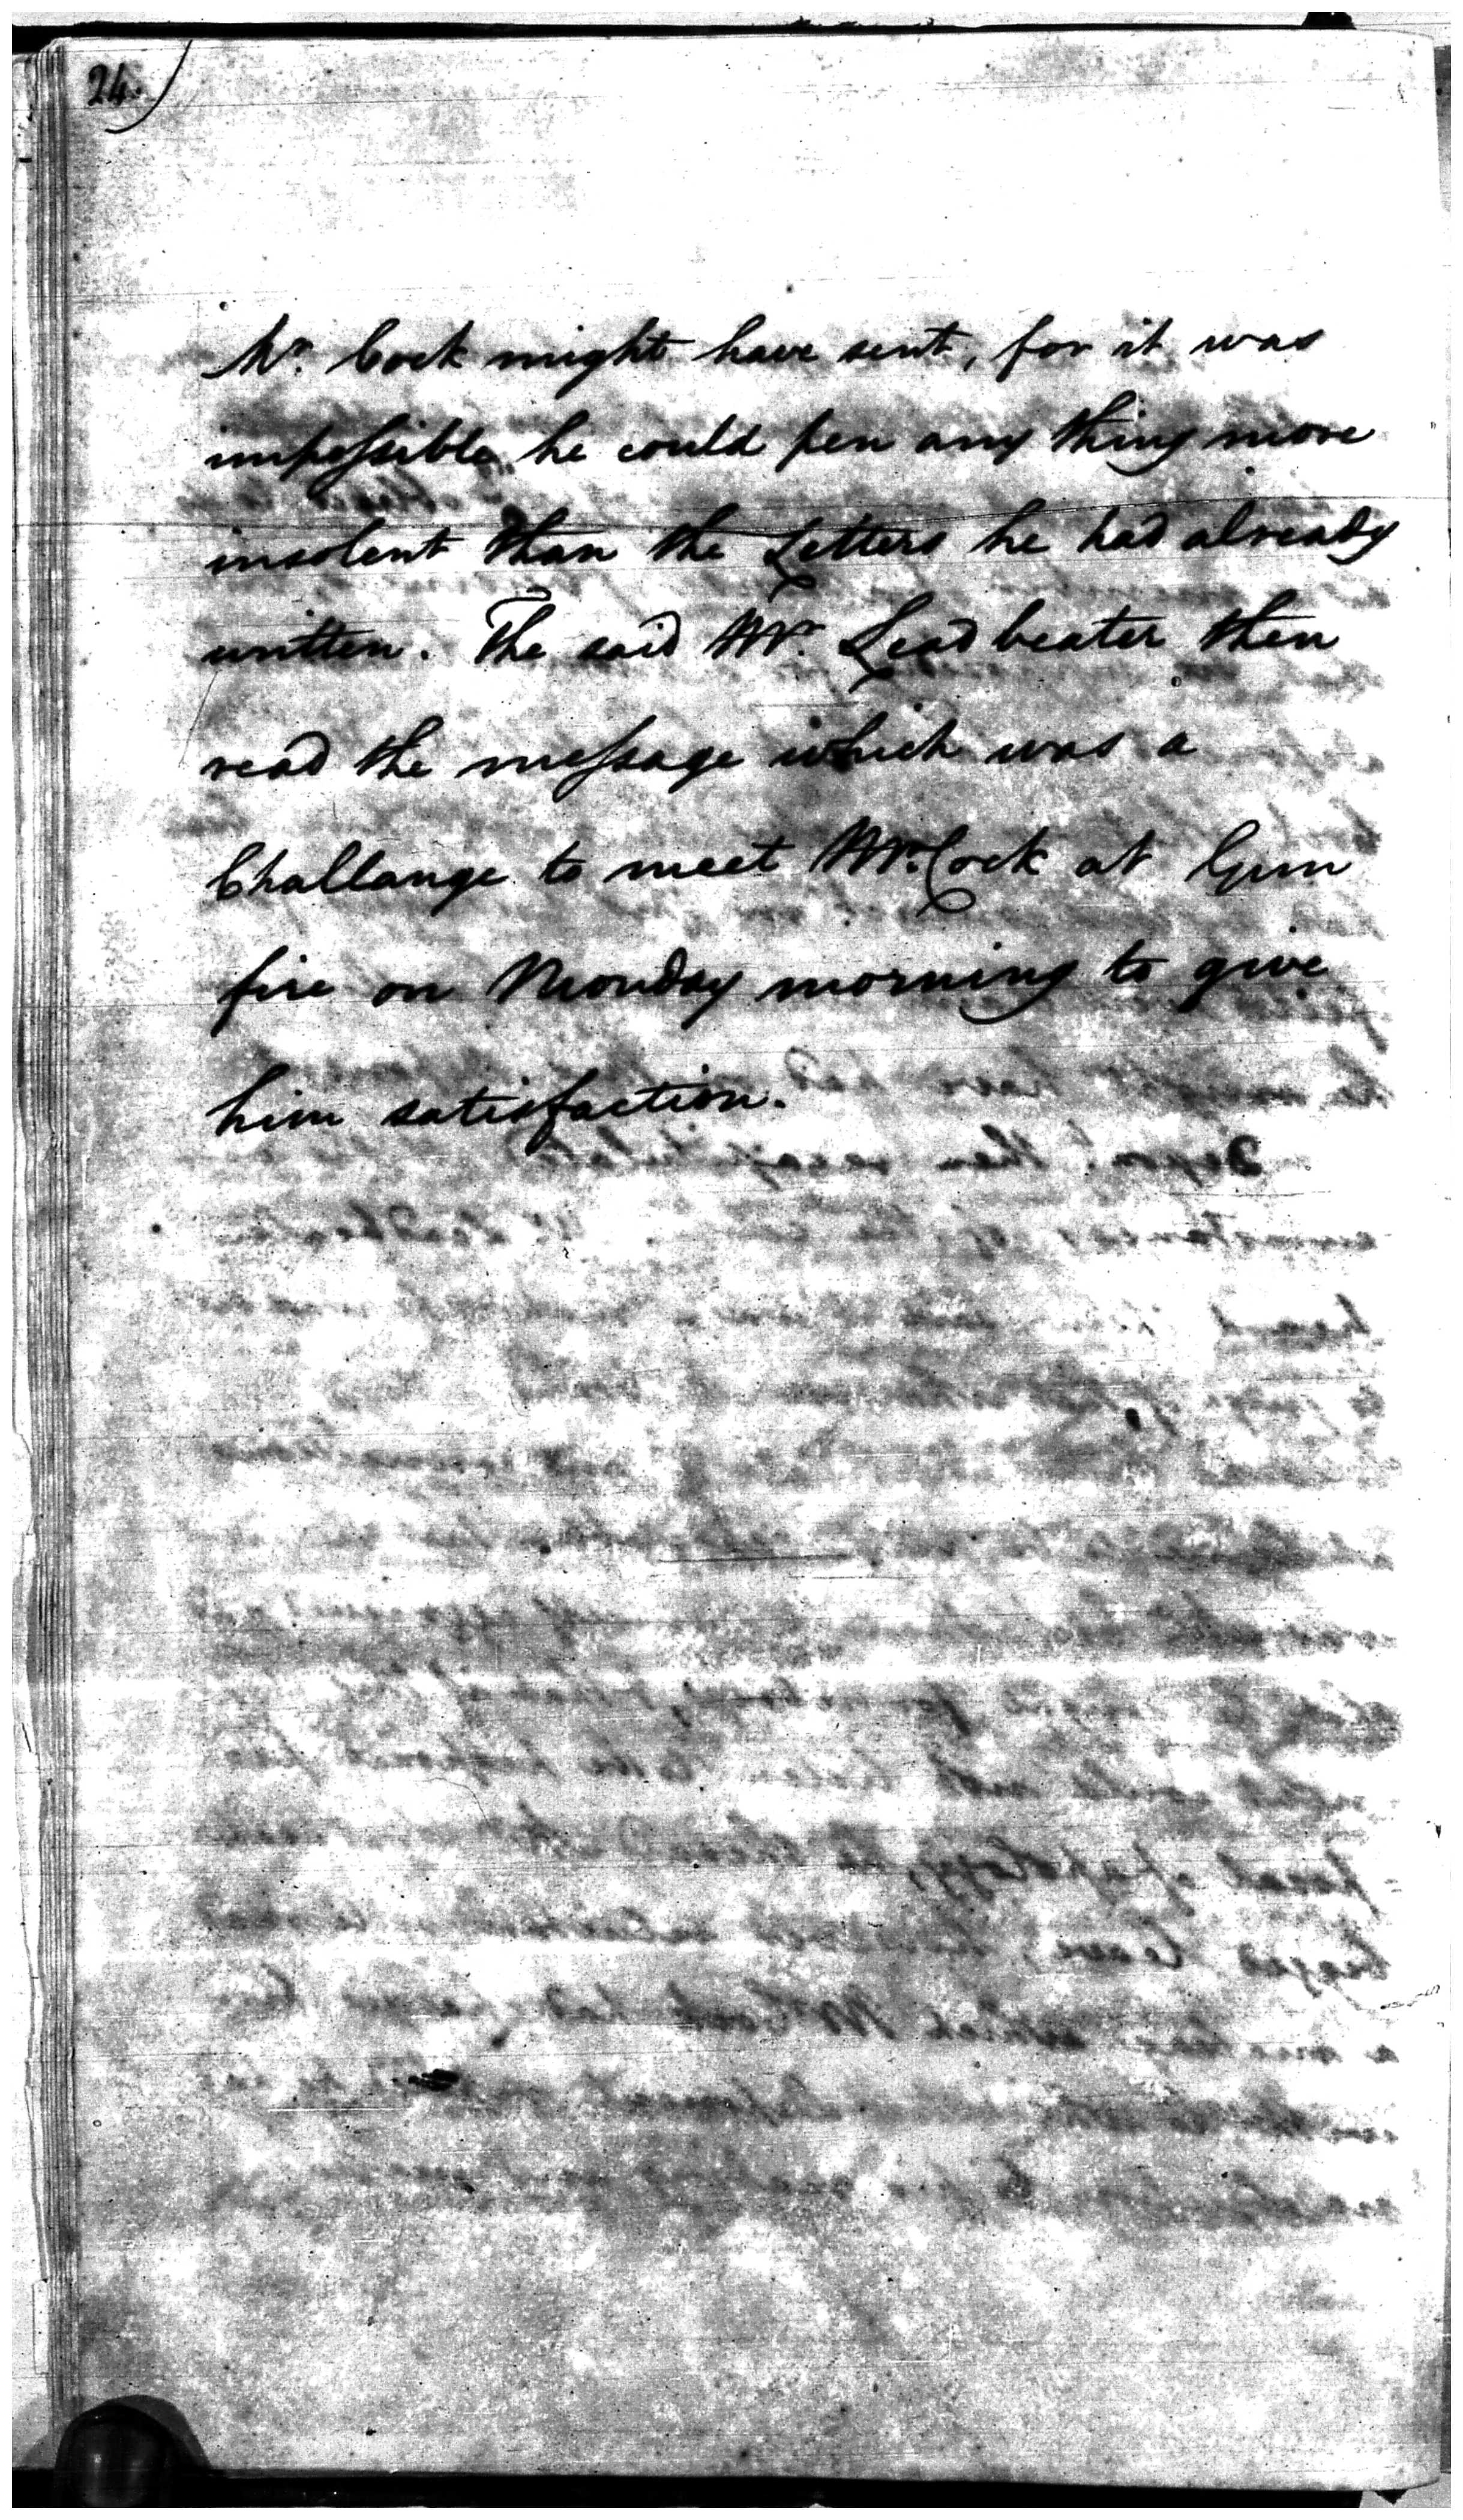 24.)
Mr. Cock might have sent, for it was
impossible he could pen any thing more
insolent than the Letters he had already
written. The said Mr. Leadbeater then
read the message which was a
Challange to meet Mr. Cock at Gun
fire on Monday morning to give
him satisfaction.